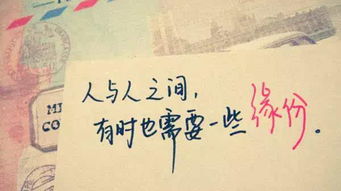 人与人之间,
有时也需要一些缘份.